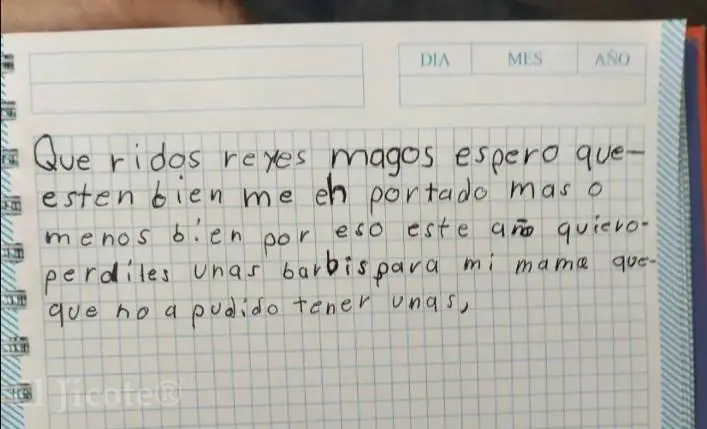 DIA MES AÑO
Que ridos reyes magos espero que-
esten bien me eh portado mas o
menos bien por eso este año quiero-
perdiles unas barbis para mi mama que-
que no a pudido tener unas,
Jicote®